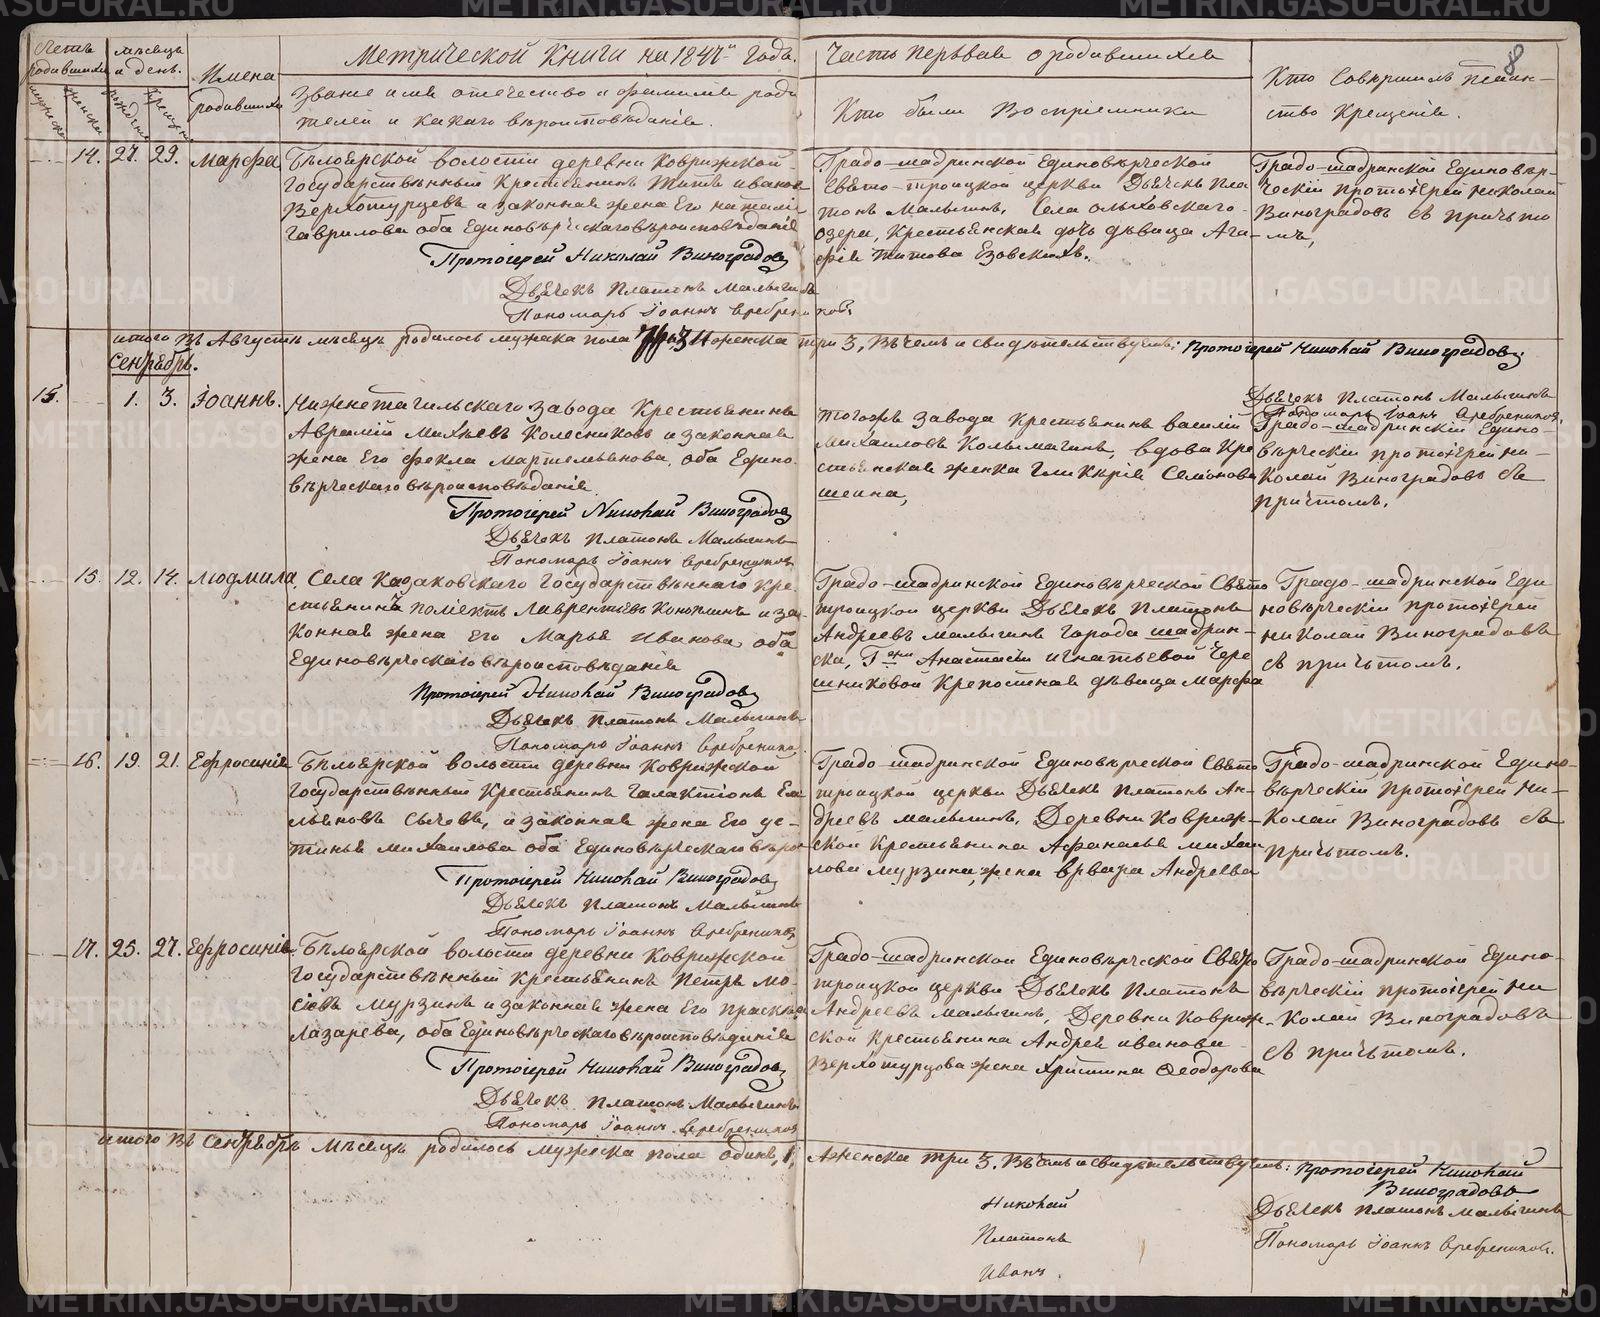 Счетъ родившихся
мужеска
женска
мѣсяцъ и день.
рожденія
крещенія
Имена родившихся
Метрической Книги на 1847й годъ.
Часть первая о родившихся
8
Званіе имя отечество и фамилія роди
телей и какаго вѣроисповѣданія.
Кто были Воспріемники
Кто Совершилъ таин-
ство Крещенія.
14. 27. 29. Марѳа
Бѣлоярской волости деревни Коврижской
Государственный Крестьянинъ Титъ иванов
Верхотурцевъ и законная жена Его наталія
Гаврилова оба Единовѣрческаго вѣроисповѣданія
Протоіерей Николай Виноградовъ
Дьячекъ Платонъ Малыгинъ
Пономарь Іоаннъ Серебрениковъ.
Градо-шадринской Единовѣрческой
Свято-троицкой церкви Дьячекъ Пла
тонъ Малыгинъ, Села ольховскаго
озера, Крестьянская дочь дѣвица Ага-
фія Титова Езовскихъ.
Градо-шадринской Единовѣр-
ческій протоіерей николай
Виноградовъ съ причьто
-мъ,
итого въ Августѣ мѣсяцѣ родилось мужска пола 3 и женска три 3, въ чемъ и свидѣтельствуемъ: Протоіерей Николай Виноградовъ
Дьячекъ Платонъ Малыгинъ
Пономарь Іоаннъ Серебрениковъ
Сентябрь.
15. 1. 3. Іоаннъ.
Нижнетагильскаго завода Крестьянинъ
Аврамій Михѣевъ Колесниковъ и законная
жена Его Фекла Мартемьянова, оба Едино
вѣрческаго вѣроисповѣданія
Протоіерей Николай Виноградовъ
Дьячекъ Платонъ Малыгинъ
Пономарь Іоаннъ Серебрениковъ
тогоже завода Крестьянинъ василій
Михаиловъ Колымагинъ, вдова Кре
стьянская женка Гликерія Семіонова
шеина,
Градо-шадринскій Едино-
вѣрческій протоіерей ни-
колай Виноградовъ съ
причтомъ.
15. 12. 14. Людмила
Села Казаковскаго Государственнаго Кре
стьянина поліектъ Лаврентьевъ Конюшинъ и за
конная жена его Марья Иванова, оба
Единовѣрческаго вѣроисповѣданія
Протоіерей Николай Виноградовъ
Дьячекъ Платонъ Малыгинъ
Пономарь Іоаннъ Серебрениковъ
Градо-шадринской Единовѣрческой Свято
троицкой церкви Дьячекъ Платонъ
Андреевъ малыгинъ города шадрин-
ска, Г-жи Анастасіи игнатьевой Чере
шниковой Крепостная дѣвица Марѳа
Градо-шадринской Еди
новѣрческій протоіерей
николай Виноградовъ
съ причьтомъ.
16. 19. 21. Ефросинія
Бѣлоярской волости деревни Коврижской
Государственный Крестьянинъ Галактіонъ Ем
льяновъ Сычевъ, и законная жена Его ус-
тинья михаилова оба Единовѣрческаго вѣрои
Протоіерей Николай Виноградовъ
Дьячекъ Платонъ Малыгинъ
Пономарь Іоаннъ Серебрениковъ
Градо-шадринской Единовѣрческой Свято
троицкой церкви Дьячекъ Платонъ Ан-
дреевъ малыгинъ, Деревни Коври-
ской Крестьянина Афанасья михаи
лова мурзина, жена варвара Андреева
Градо-шадринской Едино-
вѣрческій Протоіерей ни-
колай Виноградовъ съ
причьтомъ.
17. 25. 27. Ефросинія
Бѣлоярской волости деревни Коврижской
Государственный Крестьянинъ Петръ мо-
сіевъ мурзинъ и законная жена Его Прасковья
Лазарева, оба Единовѣрческаго вѣроисповѣданія
Протоіерей Николай Виноградовъ
Дьячекъ Платонъ Малыгинъ
Пономарь Іоаннъ Серебрениковъ
Градо-шадринской Единовѣрческой Свято
троицкой церкви Дьячекъ Платонъ
Андреевъ Малыгинъ, Деревни Коври-
ской Крестьянина Андрея иванова
Верхотурцова жена Христина Ѳеодорова
Градо-шадринской Едино-
вѣрческій протоіерей ни
колай Виноградовъ
съ причьтомъ.
итого въ Сентябрѣ мѣсяцѣ родилось мужеска пола одинъ, 1, а женска три 3. въ чемъ и свидѣтельствуемъ: Протоіерей Николай
Виноградовъ
Дьячекъ Платонъ Малыгинъ
Пономарь Іоаннъ Серебрениковъ.
Николай
Платонъ
Иванъ.
METRIKI.GASO-URAL.RU